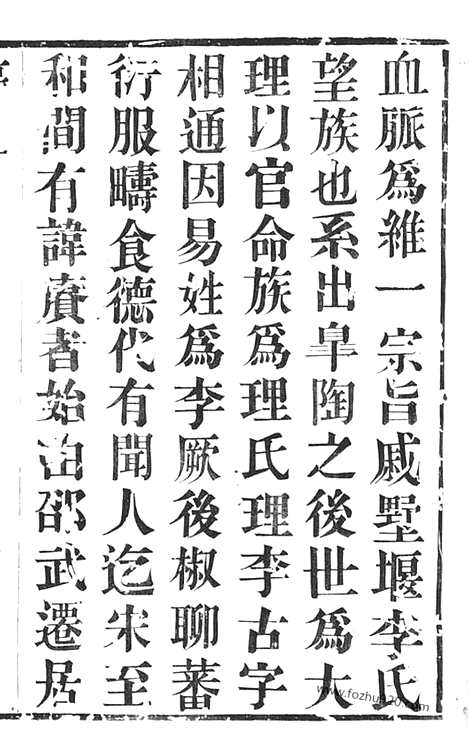 血脈爲維一宗旨戚墅堰李氏
望族也系出皐陶之後世爲大
理以官命族爲理氏理李古字
相通因易姓爲李厥後椒聊蕃
衍服疇食德代有聞人迄宋至
和間有諱賡者始由邵武遷居
www.fozhu920.com